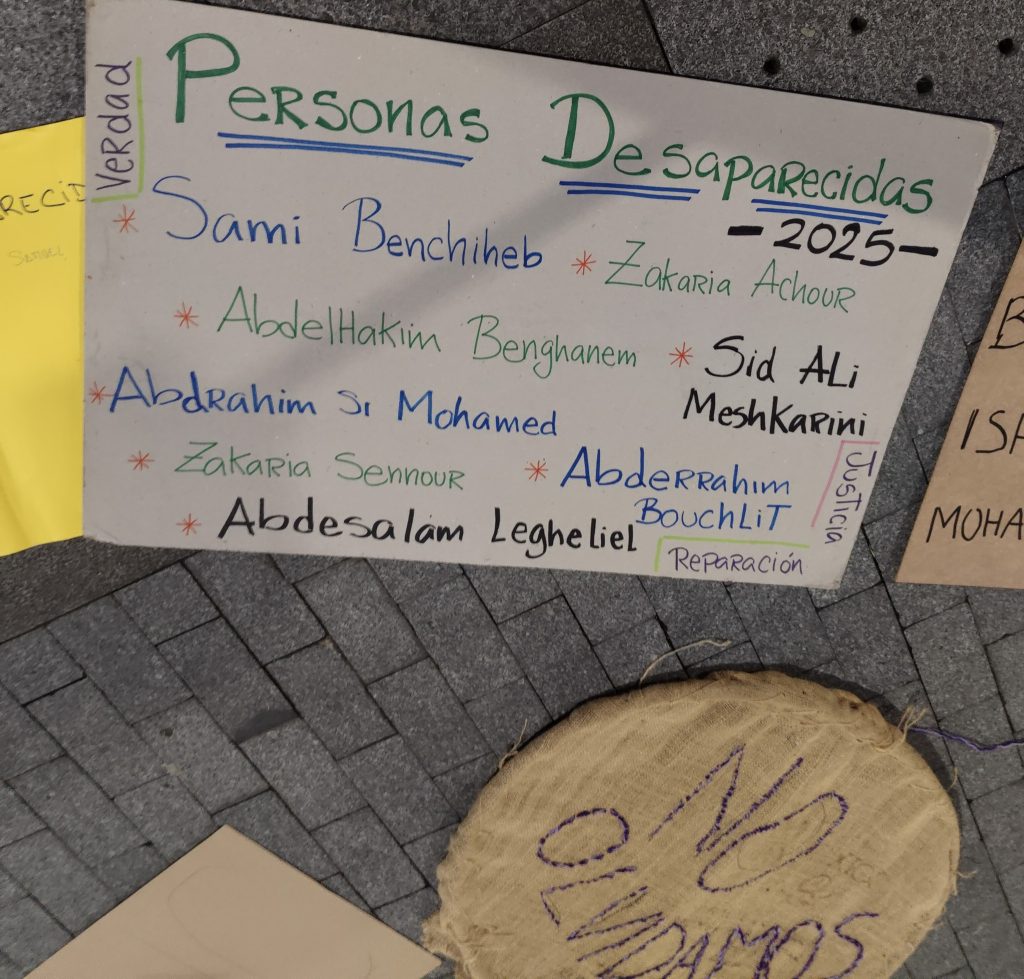 Verdad
Personas Desaparecidas
-2025-
* Sami Benchiheb
* Zakaria Achour
* AbdelHakim Benghanem
* Sid ALi
Meshkarini
* Abdrahim Si Mohamed
* Zakaria Sennour
* Abderrahim
BouchLiT
* Abdesalam Legheliel
Justicia
Reparación
RECID
B
ISA
MOHA
NO
OLVIDAMOS